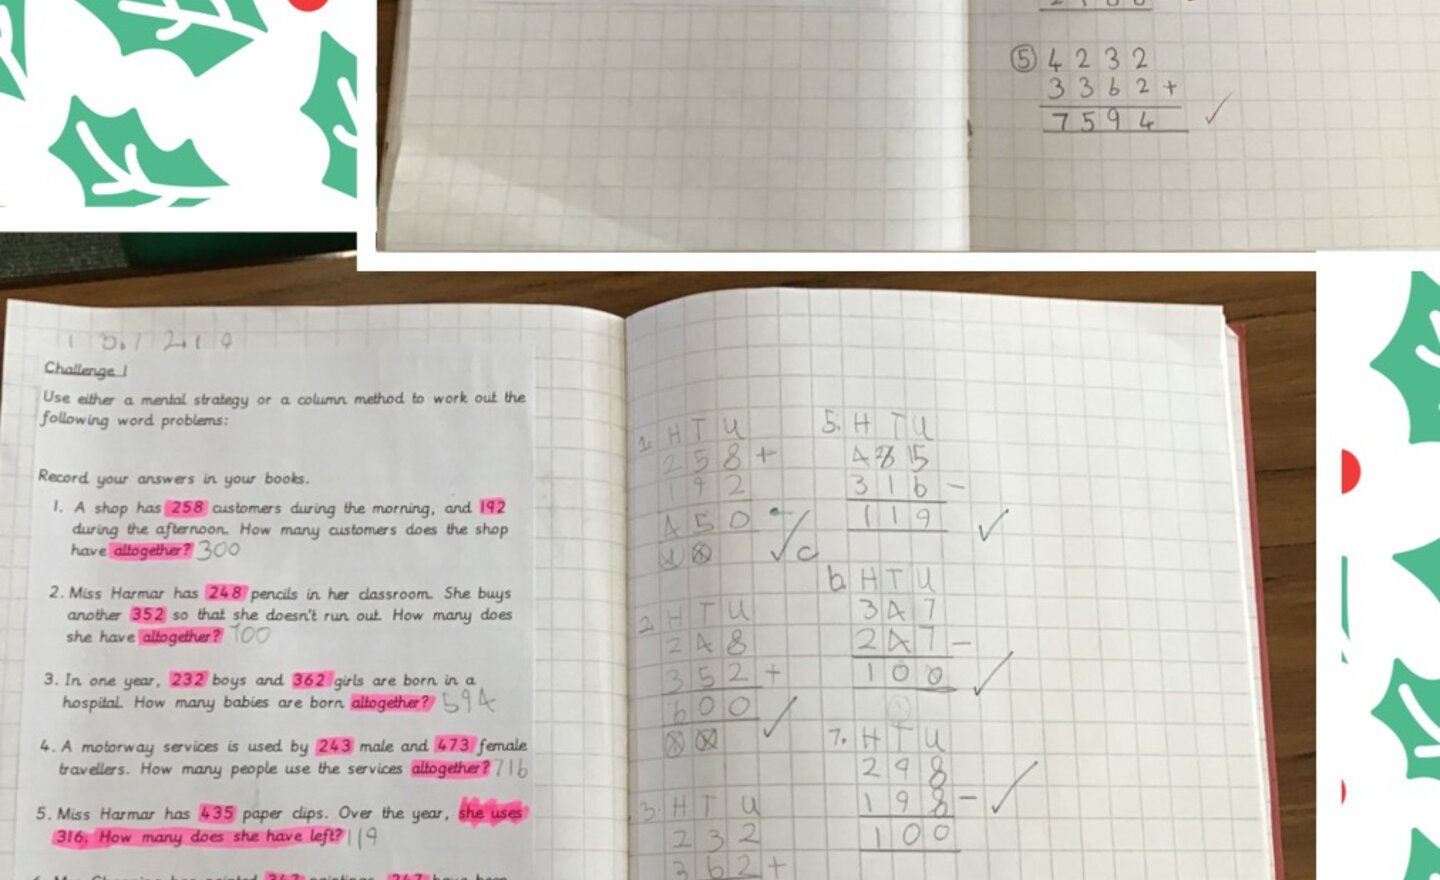 ⑤ 4 2 3 2
3 3 6 2 +
7 5 9 4 ✓
Challenge 1
Use either a mental strategy or a column method to work out the
following word problems:
Record your answers in your books.
1. A shop has 258 customers during the morning, and 192
during the afternoon. How many customers does the shop
have altogether? 300
2. Miss Harmar has 248 pencils in her classroom. She buys
another 352 so that she doesn't run out. How many does
she have altogether? 700
3. In one year, 232 boys and 362 girls are born in a
hospital. How many babies are born altogether? 594
4. A motorway services is used by 243 male and 473 female
travellers. How many people use the services altogether? 716
5. Miss Harmar has 435 paper clips. Over the year, she uses
316. How many does she have left? 119
1. H T U
2 5 8 +
1 9 2
4 5 0
✓c
2. H T U
2 4 8
3 5 2 +
6 0 0 ✓
3. H T U
2 3 2
3 6 2 +
5. H T U
4 3 15
3 1 6 -
1 1 9 ✓
6. H T U
3 4 7
2 4 7 -
1 0 0 ✓
7. H T U
2 9 8
1 9 8 - ✓
1 0 0